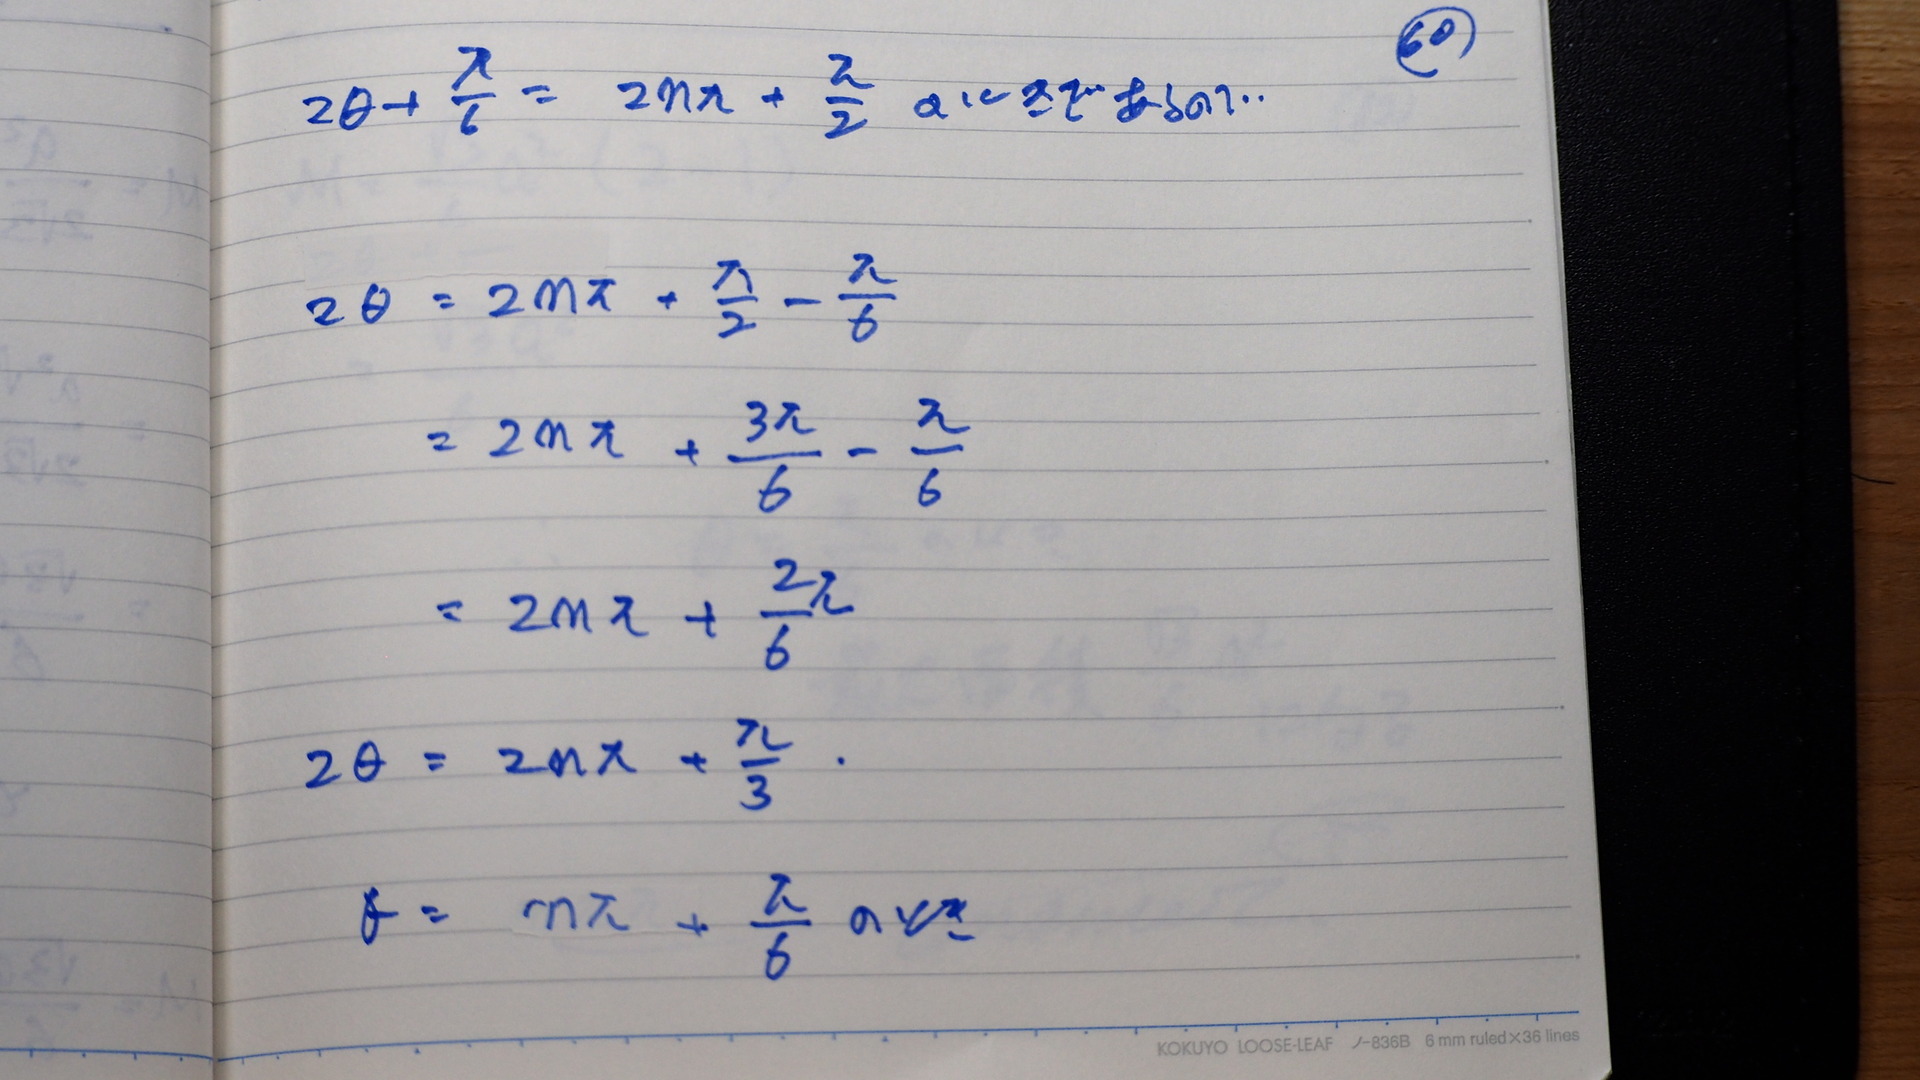 60
2θ + π/6 = 2nπ + π/2 のときであるので..
2θ = 2nπ + π/2 - π/6
= 2nπ + 3π/6 - π/6
= 2nπ + 2π/6
2θ = 2nπ + π/3 .
θ = nπ + π/6 のとき
KOKUYO LOOSE-LEAF ノ-836B 6 mm ruled×36 lines